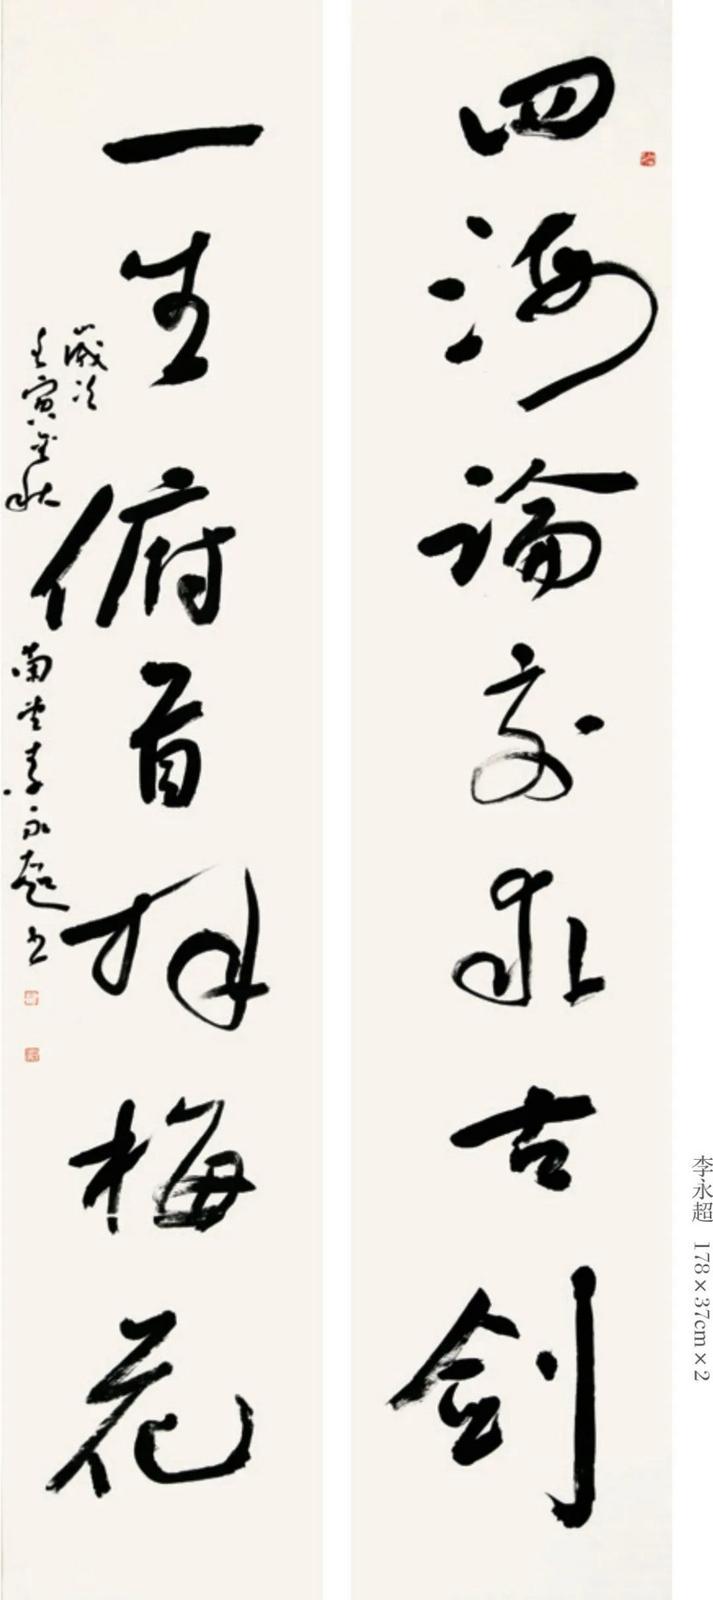 四海論交求古劍
一生俯首拜梅花
歲次
壬寅金秋
李永超书
李永超 178×37cm×2